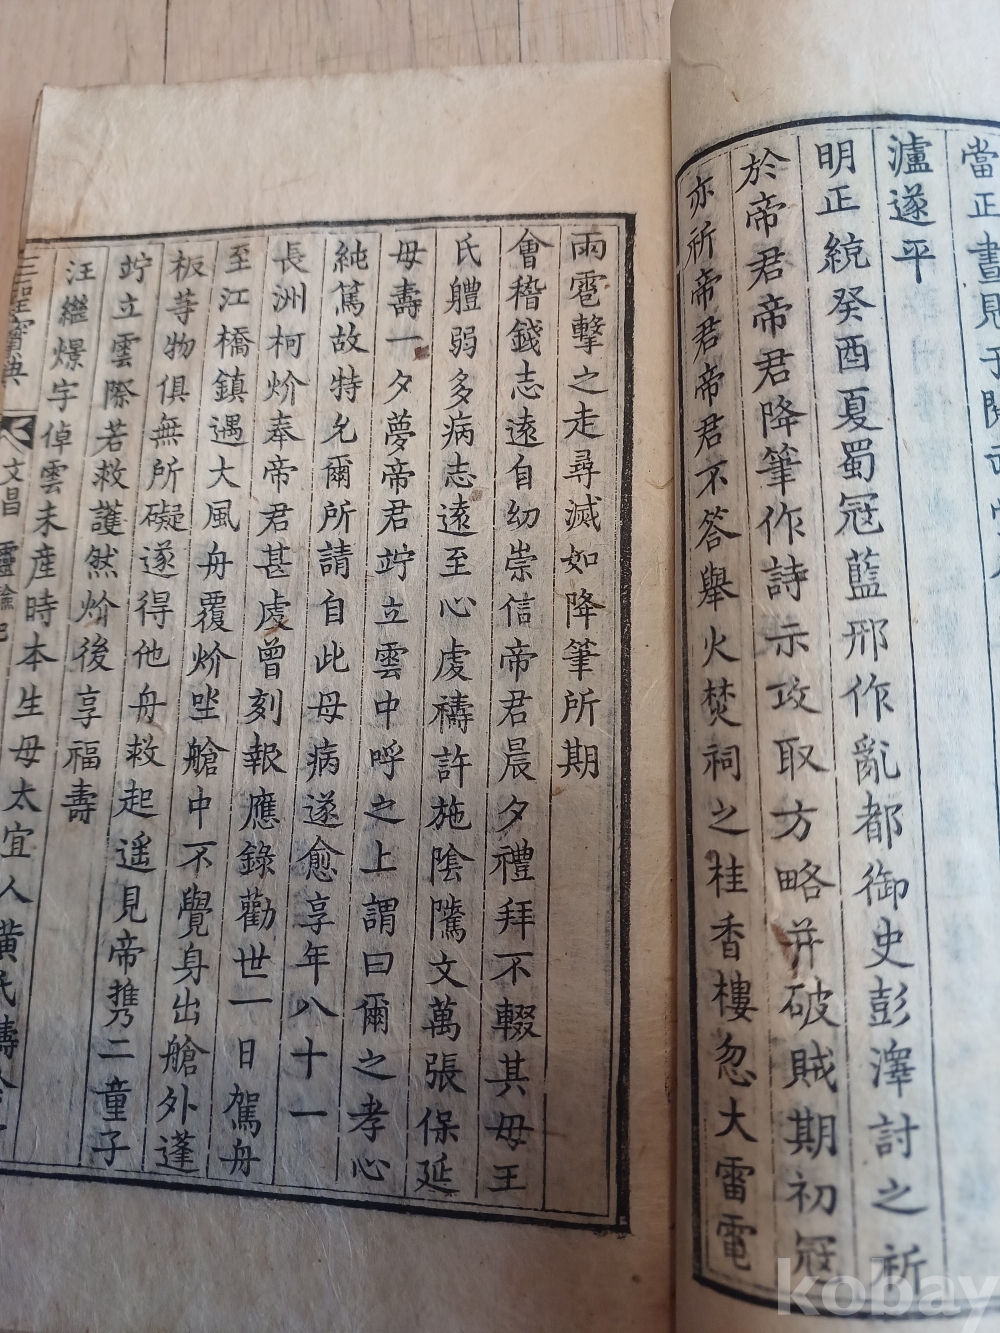 當正晝見于閱武
瀘遂平
明正統癸酉夏蜀冦藍邢作亂都御史彭澤討之祈
於帝君帝君降筆作詩示攻取方略并破賊期初冦
亦祈帝君帝君不答舉火焚祠之桂香樓忽大雷電
雨雹擊之走尋滅如降筆所期
會稽錢志遠自幼崇信帝君晨夕禮拜不輟其母王
氏軆弱多病志遠至心虔禱許施陰隲文萬張保延
母壽一夕夢帝君竚立雲中呼之上謂曰爾之孝心
純篤故特允爾所請自此母病遂愈享年八十一
長洲柯炌奉帝君甚虔曾刻報應錄勸世一日駕舟
至江橋鎮遇大風舟覆炌坐艙中不覺身出艙外蓬
板䓁物俱無所礙遂得他舟救起遥見帝携二童子
竚立雲際若救護然炌後享福壽
汪繼燝字倬雲未産時本生母太宜人黃氏禱
三聖寶典
文昌 靈驗記
kobay